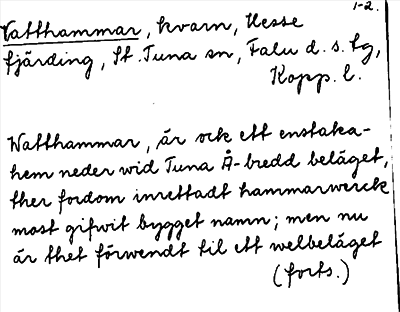 1-2.
Vatthammar, kvarn, Uesse
fjärding, St. Tuna sn, Falu d. s. fg,
Kopp. l.
Watthammar, är ock ett enstaka-
hem neder wid Tuna Å-bredd beläget,
ther fordom inrettadt hammarwerck
most gifwit bygget namn; men nu
är thet förwendt til ett welbeläget
(forts.)